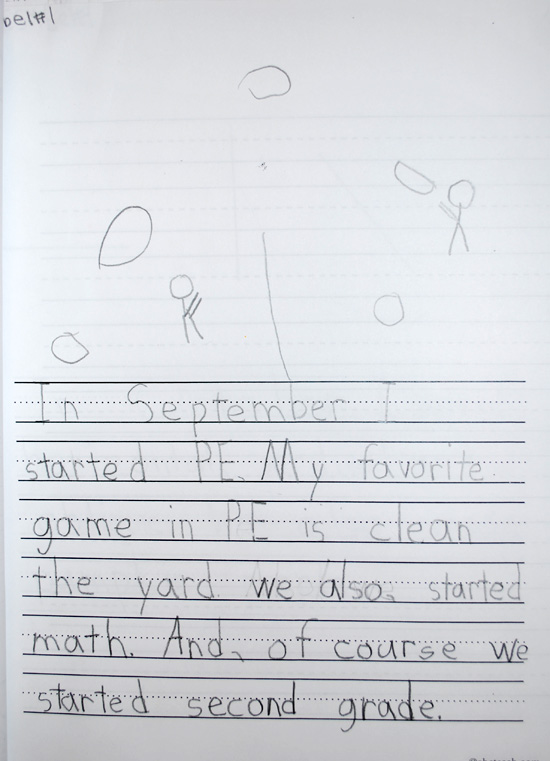 bel#1
In September I
started PE. My favorite
game in PE is clean
the yard we also, started
math. And, of course we
started second grade.